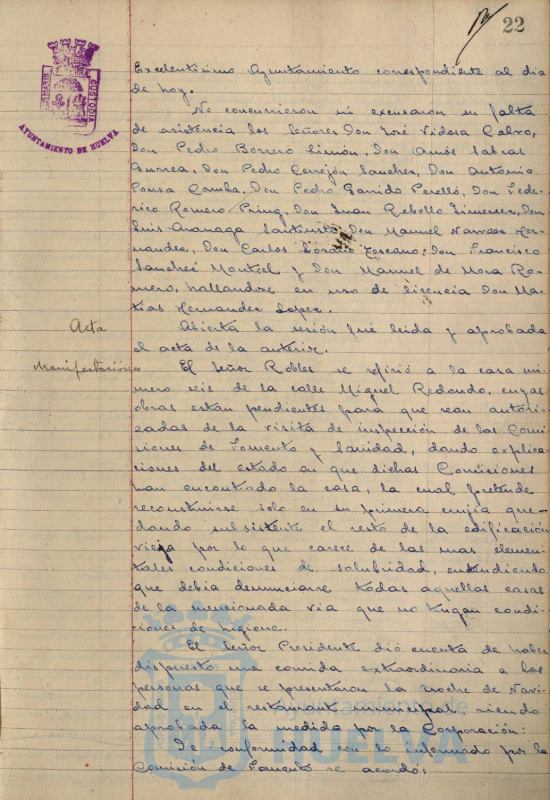 22
AYUNTAMIENTO DE HUELVA
Excelentísimo Ayuntamiento correspondiente al dia
de hoy.
No concurrieron ni excusaron su falta
de asistencia los Señores Don José Vidosa Calvo,
Don Pedro Borrero Limón, Don Amós Sabras
Gurrea, Don Pedro Cerrejón Sanchez, Don Antonio
Ponsa Camba, Don Pedro Garrido Perelló, Don Fede-
rico Romero Pring, Don Juan Rebollo Jimenez, Don
Luis Aranaga Santurtó, Don Manuel Narvaez Her-
nandez, Don Carlos Toscano, Don Francisco
Sanchez Montiel y Don Manuel de Mora Ro-
mero, hallandose en uso de licencia Don Ma-
tias Hernandez Lopez.
Acta
Abierta la sesión fué leida y aprobada
el acta de la anterior.
Manifestaciones
El Señor Robles se refirió a la casa nú-
mero seis de la calle Miguel Redondo, cuyas
obras están pendientes para que sean autori-
zadas de la visita de inspección de las Comi-
siones de Fomento y Sanidad, dando explica-
ciones del estado en que dichas Comisiones
han encontrado la casa, la cual pretende
reconstruirse solo en su primera crujia que-
dando subsistente el resto de la edificación
vieja por lo que carece de las mas elemen-
tales condiciones de salubridad, entendiendo
que debia denunciarse todas aquellas casas
de la mencionada via que no tengan condi-
ciones de higiene.
El Señor Presidente dió cuenta de haber
dispuesto una comida extraordinaria a las
personas que se presentaron la noche de Navi-
dad en el restaurant municipal, siendo
aprobada la medida por la Corporación:
De conformidad con lo informado por la
Comisión de Fomento se acordó:
Ayuntamiento de
HUELVA